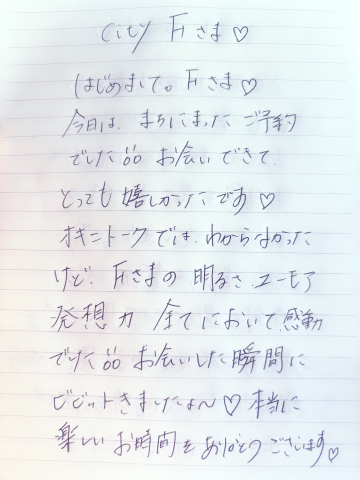 City Fiさま♡
はじめまして。Fiさま♡
今日は、まちにまった ご予約
でした öö お会いできて
とっても 嬉しかったです♡
オキニトークでは、わからなかった
けど、Fiさまの 明るさ、ユーモア
発想力 全てにおいて、感動
でした öö お会いした瞬間に
ビビットきましたよ〜♡ 本当に
楽しい お時間を ありがとうございます♡